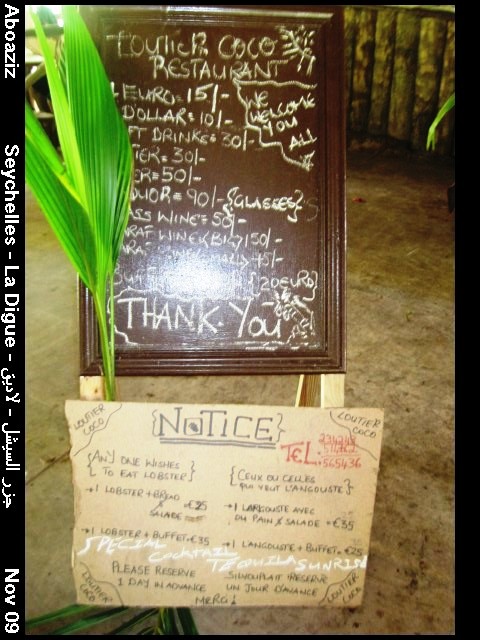 Aboaziz
Seychelles - La Digue - لاديق - جزر السيشل
Nov 09
LOUTIER COCO
RESTAURANT
EURO = 15/-
DOLLAR = 10/-
WE
WELCOME
YOU
ALL
FT DRINKS = 30/-
TER = 30/-
ER = 50/-
QUOR = 90/- {GLASSES}
ASS WINE = 50/-
ARAF WINE (BIG) 150/-
75/-
{20 EURO}
THANK. YOU
LOUTIER
COCO
{NOTICE}
LOUTIER
COCO
TEL:
565436
{ANY ONE WISHES
TO EAT LOBSTER}
→1 LOBSTER + BREAD
& SALADE €25
→1 LOBSTER + BUFFET €35
{CEUX OU CELLES
QUI VEUT L'ANGOUSTE}
→1 LANGOUSTE AVEC
DU PAIN & SALADE → €35
→1 LANGOUSTE + BUFFET €25
SPECIAL COCKTAIL TEQUILA SUNRISE
PLEASE RESERVE
1 DAY IN ADVANCE
SILVOUPLAIT RESERVE
UN JOUR D'AVANCE
MERCI!
LOUTIER
COCO
LOUTIER
COCO